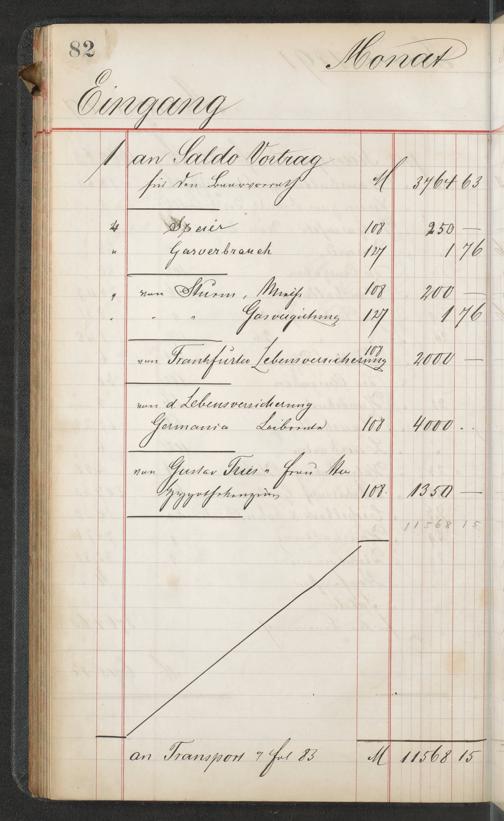 82 Monat
Eingang
1 an Saldo Vortrag
für den Baarvorrath M 3764 63
4 Speier 108 250 —
" Gasverbrauch 127 1 76
" von Sturm, 108 200 —
" " " Gasvergütung 127 1 76
von Frankfurter Lebensversicherung 108 2000 —
von d Lebensversicherung
Germania Leibrente 108 4000 . .
von Gustav Fries Frau
Hypothekenzinsen 108 1350 —
11568 15
an Transport fol 83 M 11568 15